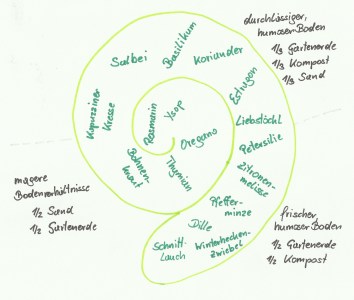 durchlässiger,
humoser Boden
1/3 Gartenerde
1/3 Kompost
1/3 Sand
Salbei
Basilikum
Koriander
Estragon
Kapuziner
Kresse
Rosmarin
Ysop
Oregano
Liebstöckl
Petersilie
Bohnen-
kraut
Thymian
Zitronen-
melisse
magere
Bodenverhältnisse
1/2 Sand
1/2 Gartenerde
Pfeffer-
minze
Dille
Schnitt-
Lauch
Winterhecken-
zwiebel
frischer,
humoser Boden
1/2 Gartenerde
1/2 Kompost